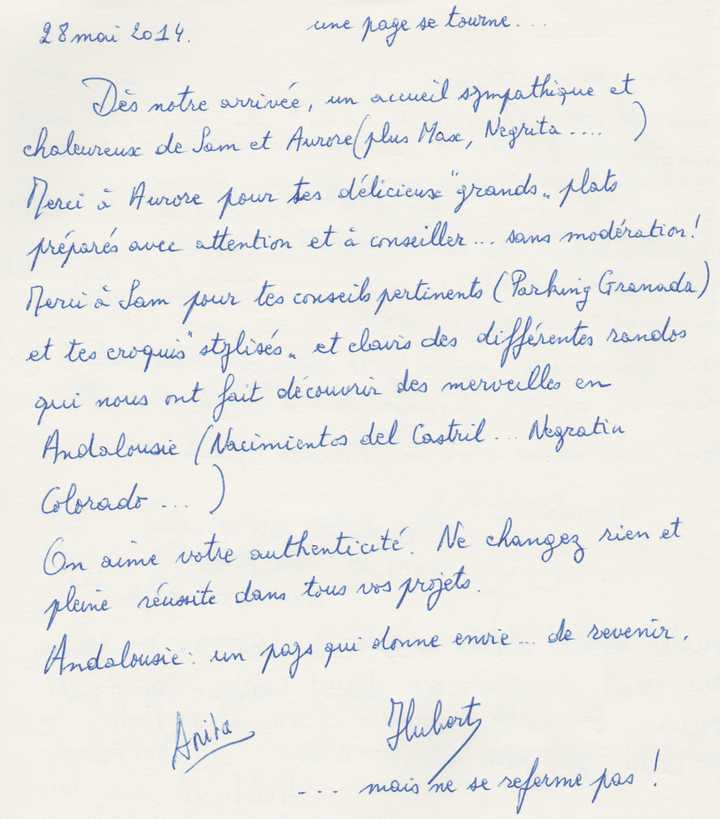 28 mai 2014. une page se tourne...
Dès notre arrivée, un accueil sympathique et
chaleureux de Sam et Aurore (plus Max, Negrita .... )
Merci à Aurore pour tes délicieux "grands" plats
préparés avec attention et à conseiller... sans modération!
Merci à Sam pour tes conseils pertinents (Parking Granada)
et tes croquis "stylisés" et clairs des différentes randos
qui nous ont fait découvrir des merveilles en
Andalousie (Nacimientos del Castril... Negratin
Colorado ... )
On aime votre authenticité. Ne changez rien et
pleine réussite dans tous vos projets.
Andalousie: un pays qui donne envie... de revenir.
Anita Hubert
... mais ne se referme pas !